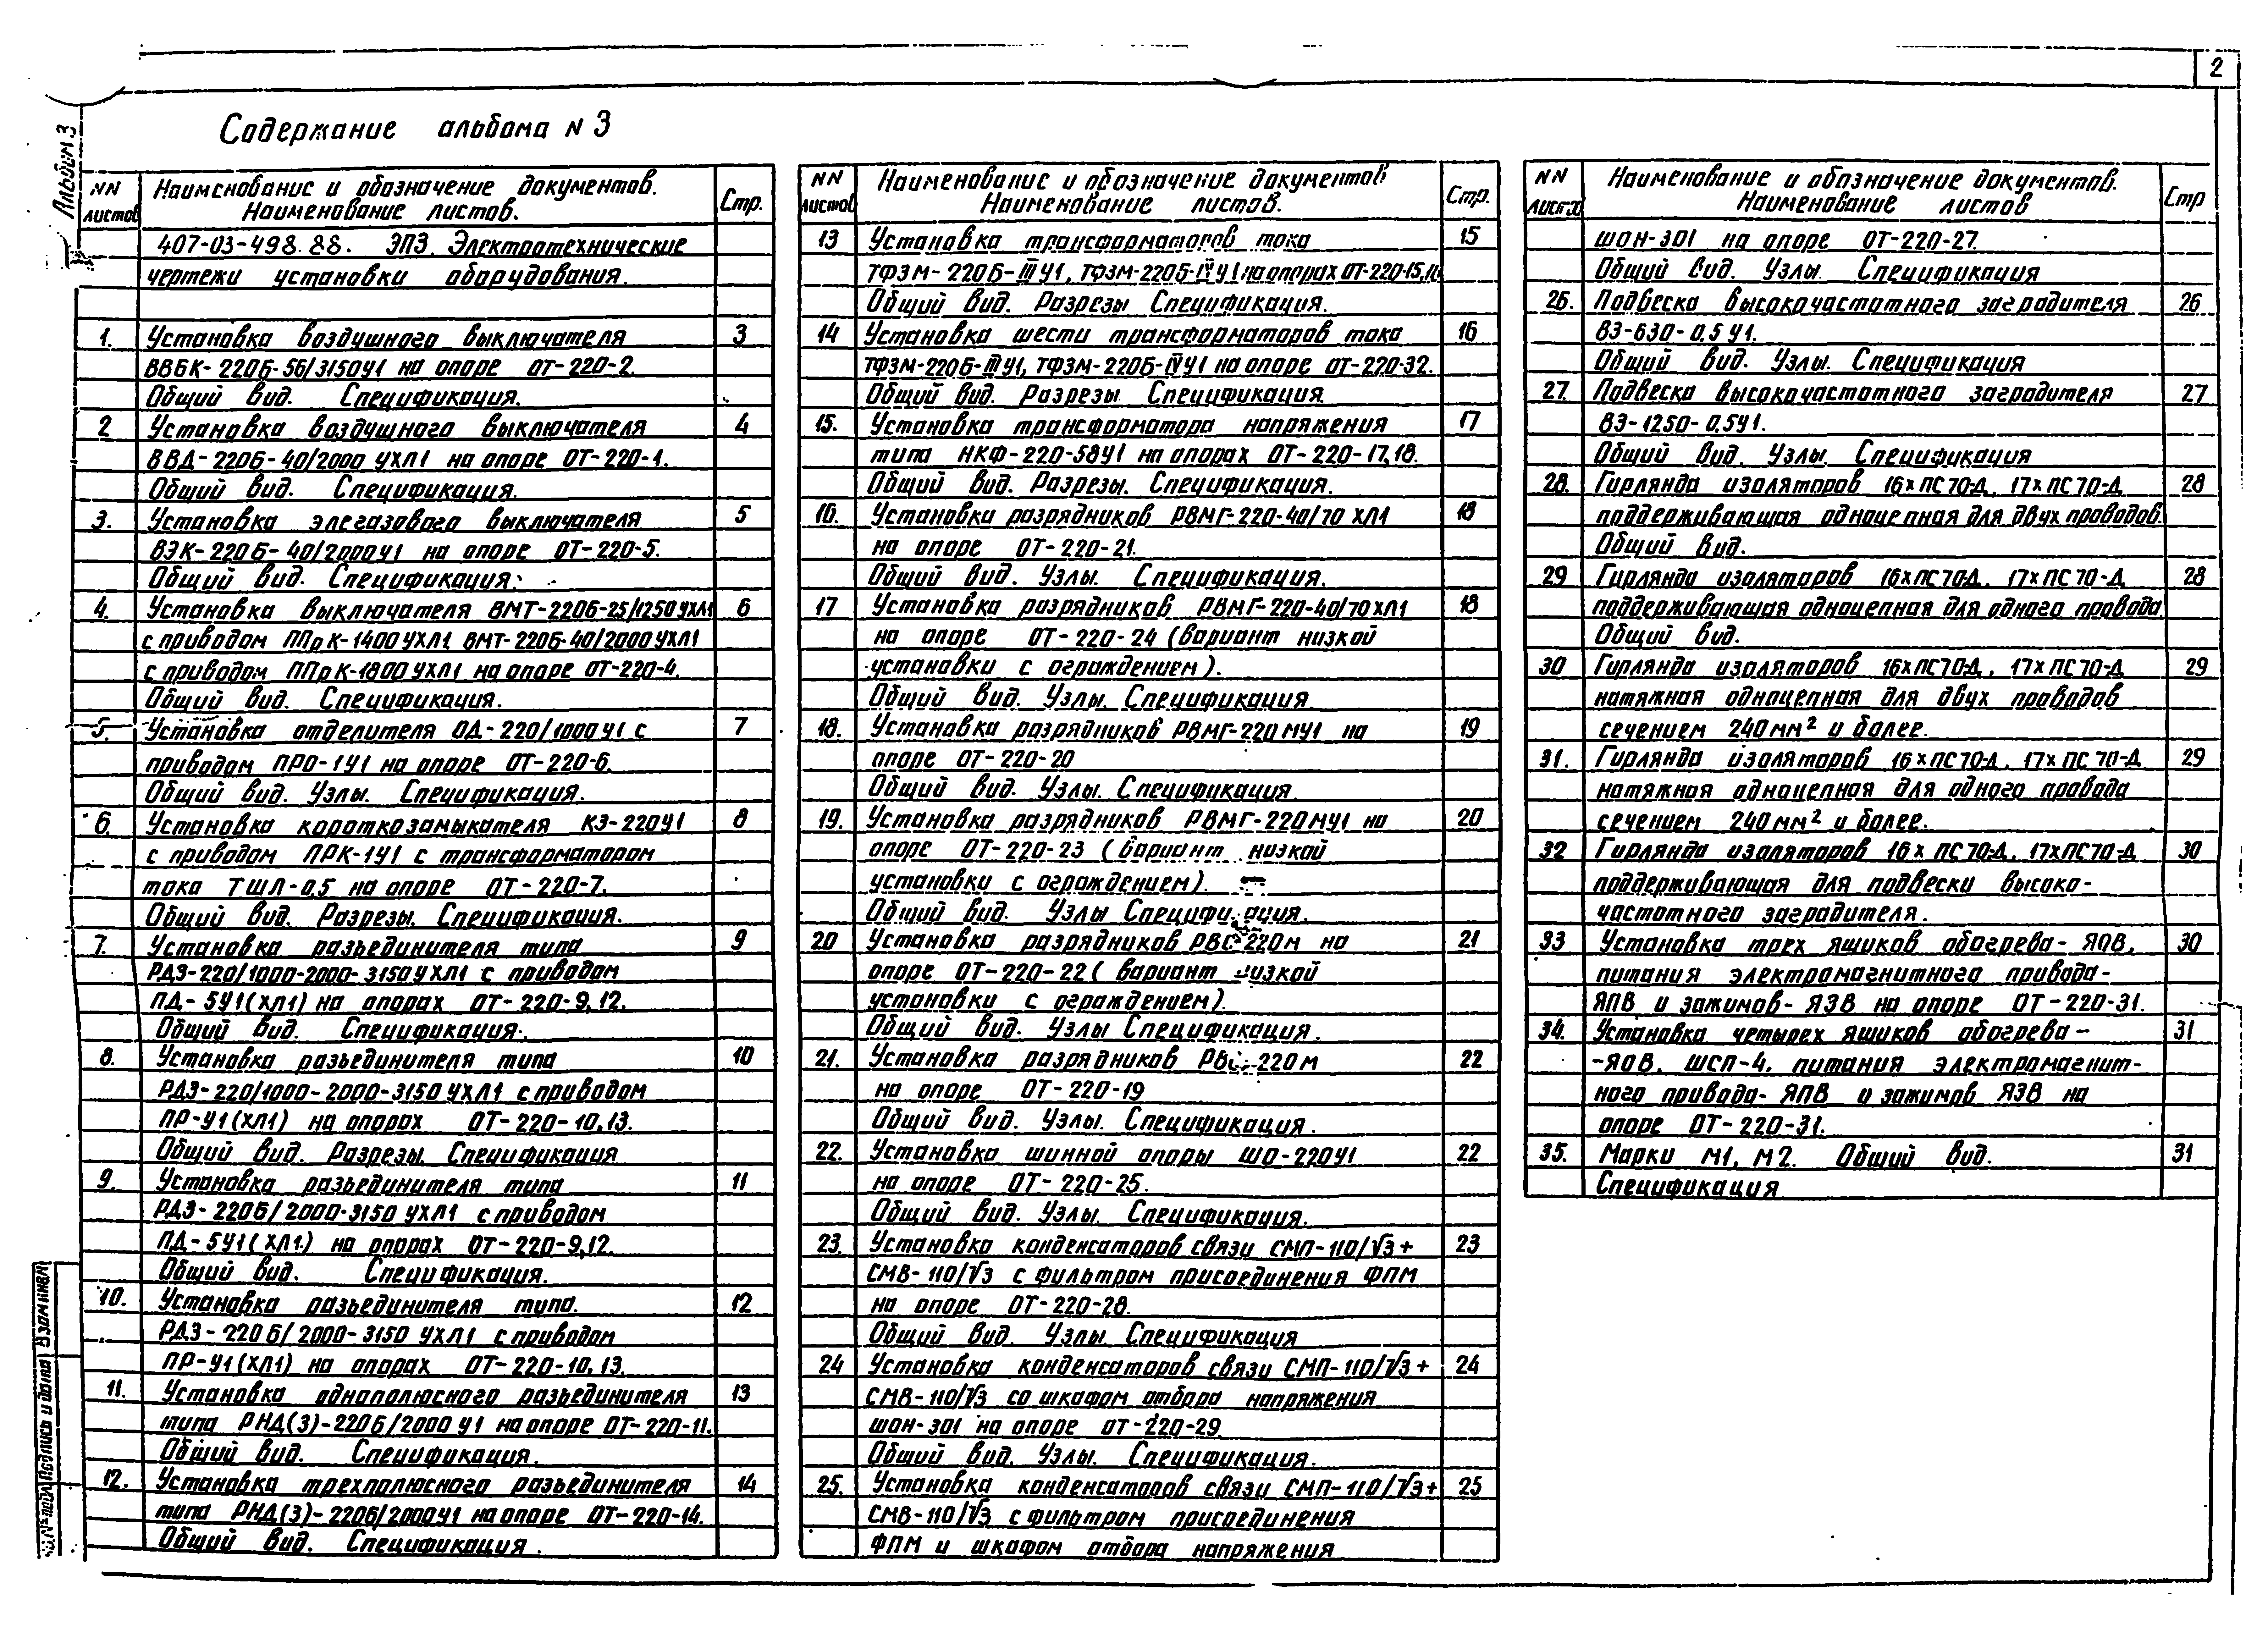 2
Альбом 3
Содержание альбома N 3
NN листов
Наименование и обозначение документов.
Наименование листов.
Стр.
407-03-498.88. ЭП3. Электротехнические
чертежи установки оборудования.
1. Установка воздушного выключателя 3
ВВБК-220Б-56/3150У1 на опоре ОТ-220-2.
Общий вид. Спецификация.
2 Установка воздушного выключателя 4
ВВД-220Б-40/2000 УХЛ1 на опоре ОТ-220-1.
Общий вид. Спецификация.
3. Установка элегазового выключателя 5
ВЭК-220Б-40/2000У1 на опоре ОТ-220-5.
Общий вид. Спецификация.
4. Установка выключателя ВМТ-220Б-25/1250 УХЛ1 6
с приводом ППрК-1400 УХЛ1, ВМТ-220Б-40/2000 УХЛ1
с приводом ППрК-1800 УХЛ1 на опоре ОТ-220-4.
Общий вид. Спецификация.
5. Установка отделителя ОД-220/1000 У1 с 7
приводом ПРО-1У1 на опоре ОТ-220-6.
Общий вид. Узлы. Спецификация.
6. Установка короткозамыкателя КЗ-220У1 8
с приводом ПРК-1У1 с трансформатором
тока ТШЛ-0,5 на опоре ОТ-220-7.
Общий вид. Разрезы. Спецификация.
7. Установка разъединителя типа 9
РДЗ-220/1000-2000-3150 УХЛ1 с приводом
ПД-5У1(ХЛ1) на опорах ОТ-220-9,12.
Общий вид. Спецификация.
8. Установка разъединителя типа 10
РДЗ-220/1000-2000-3150 УХЛ1 с приводом
ПР-У1(ХЛ1) на опорах ОТ-220-10,13.
Общий вид. Разрезы. Спецификация
9. Установка разъединителя типа 11
РДЗ-220Б/2000-3150 УХЛ1 с приводом
ПД-5У1(ХЛ1.) на опорах ОТ-220-9,12.
Общий вид. Спецификация.
10. Установка разъединителя типа. 12
РДЗ-220Б/2000-3150 УХЛ1 с приводом
ПР-У1(ХЛ1) на опорах ОТ-220-10,13.
11. Установка однополюсного разъединителя 13
типа РНД(З)-220Б/2000 У1 на опоре ОТ-220-11.
Общий вид. Спецификация.
12. Установка трехполюсного разъединителя 14
типа РНД(З)-220Б/2000У1 на опоре ОТ-220-14.
Общий вид. Спецификация.
NN листов
Наименование и обозначение документов
Наименование листов.
Стр.
13 Установка трансформаторов тока 15
ТФЗМ-220Б-IIIУ1, ТФЗМ-220Б-IVУ1 на опорах ОТ-220-15,16
Общий вид. Разрезы Спецификация.
14 Установка шести трансформаторов тока 16
ТФЗМ-220Б-IIIУ1, ТФЗМ-220Б-IVУ1 на опоре ОТ-220-32.
Общий вид. Разрезы. Спецификация.
15. Установка трансформатора напряжения 17
типа НКФ-220-58У1 на опорах ОТ-220-17,18.
Общий вид. Разрезы. Спецификация.
16. Установки разрядников РВМГ-220-40/70 ХЛ1 18
на опоре ОТ-220-21.
Общий вид. Узлы. Спецификация.
17 Установка разрядников РВМГ-220-40/70ХЛ1 18
на опоре ОТ-220-24 (вариант низкой
установки с ограждением).
Общий вид. Узлы. Спецификация.
18. Установка разрядников РВМГ-220МУ1 на 19
опоре ОТ-220-20
Общий вид. Узлы. Спецификация.
19. Установка разрядников РВМГ-220МУ1 на 20
опоре ОТ-220-23 (вариант низкой
установки с ограждением).
Общий вид. Узлы Спецификация.
20 Установка разрядников РВС-220м на 21
опоре ОТ-220-22 (вариант низкой
установки с ограждением).
Общий вид. Узлы Спецификация.
21. Установка разрядников РВС-220м 22
на опоре ОТ-220-19
Общий вид. Узлы. Спецификация.
22. Установка шинной опоры ШО-220У1 22
на опоре ОТ-220-25.
Общий вид. Узлы. Спецификация.
23. Установка конденсаторов связи СМП-110/√3+ 23
СМВ-110/√3 с фильтром присоединения ФПМ
на опоре ОТ-220-28.
Общий вид. Узлы. Спецификация
24 Установка конденсаторов связи СМП-110/√3+ 24
СМВ-110/√3 со шкафом отбора напряжения
ШОН-301 на опоре ОТ-220-29.
Общий вид. Узлы. Спецификация.
25. Установка конденсаторов связи СМП-110/√3+ 25
СМВ-110/√3 с фильтром присоединения
ФПМ и шкафом отбора напряжения
NN листов
Наименование и обозначение документов.
Наименование листов
Стр
ШОН-301 на опоре ОТ-220-27.
Общий вид. Узлы. Спецификация
26. Подвеска высокочастотного заградителя 26
ВЗ-630-0,5У1.
Общий вид. Узлы. Спецификация
27. Подвеска высокочастотного заградителя 27
ВЗ-1250-0,5У1.
Общий вид. Узлы. Спецификация
28. Гирлянда изоляторов 16хПС70-Д, 17хПС70-Д 28
поддерживающая одноцепная для двух проводов.
Общий вид.
29 Гирлянда изоляторов 16хПС70-Д, 17хПС70-Д 28
поддерживающая одноцепная для одного провода.
Общий вид.
30 Гирлянда изоляторов 16хПС70-Д, 17хПС70-Д 29
натяжная одноцепная для двух проводов
сечением 240мм² и более.
31. Гирлянда изоляторов 16хПС70-Д, 17хПС70-Д 29
натяжная одноцепная для одного провода
сечением 240мм² и более.
32 Гирлянда изоляторов 16хПС70-Д, 17хПС70-Д 30
поддерживающая для подвески высоко-
частотного заградителя.
33 Установка трех ящиков обогрева-ЯОВ, 30
питания электромагнитного привода-
ЯПВ и зажимов-ЯЗВ на опоре ОТ-220-31.
34. Установка четырех ящиков обогрева- 31
-ЯОВ, ШСП-4, питания электромагнит-
ного привода-ЯПВ и зажимов ЯЗВ на
опоре ОТ-220-31.
35. Марки М1, М2. Общий вид. 31
Спецификация
Взам.инв.N
Подпись и дата